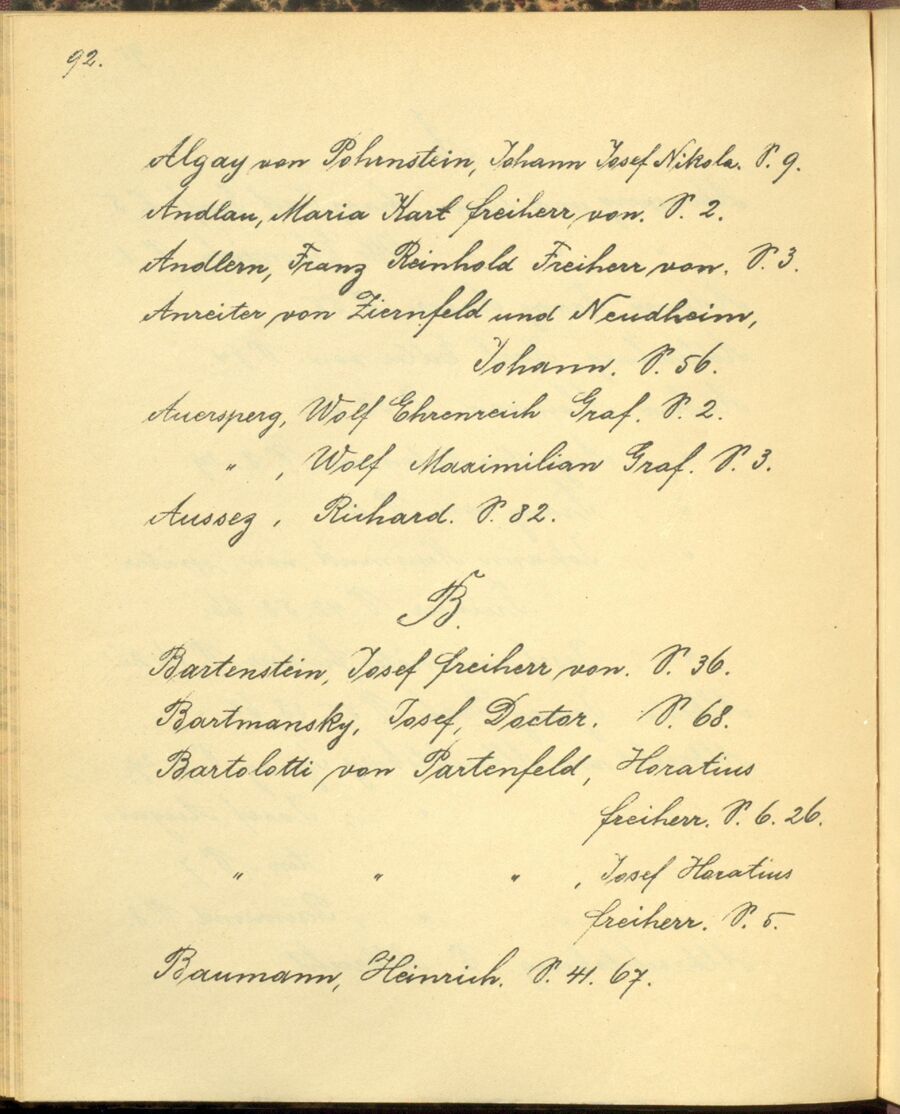 92.
Algay von Pohrnstein, Johann Josef Nikola. S. 9.
Andlau, Maria Karl freiherr von. S. 2.
Andlern, Franz Reinhold Freiherr von. S. 3.
Anreiter von Ziernfeld und Neudheim,
Johann. S. 56.
Auersperg, Wolf Ehrenreich Graf. S. 2.
" , Wolf Maximilian Graf. S. 3.
Aussez, Richard. S. 82.
B.
Bartenstein, Josef freiherr von. S. 36.
Bartmansky, Josef, Doctor. S. 68.
Bartolotti von Partenfeld, Horatius
freiherr. S. 6. 26.
" " " , Josef Horatius
freiherr. S. 5.
Baumann, Heinrich. S. 41. 67.